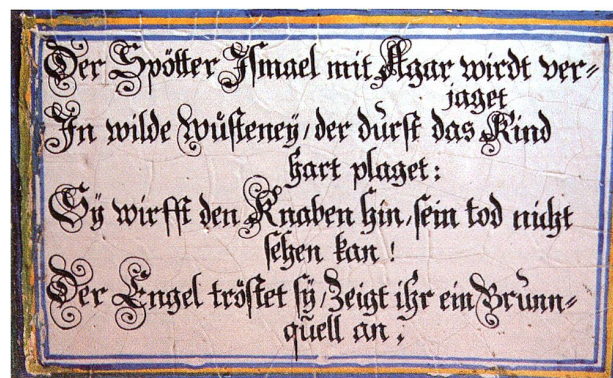 Der Spötter Ismael mit Agar wirdt ver=
jaget
In wilde Wüsteneÿ/der durst das Kind
hart plaget:
Sÿ wirfft den Knaben hin, sein tod nicht
sehen kan!
Der Engel tröstet sÿ/Zeigt ihr ein Brunn=
quell an.